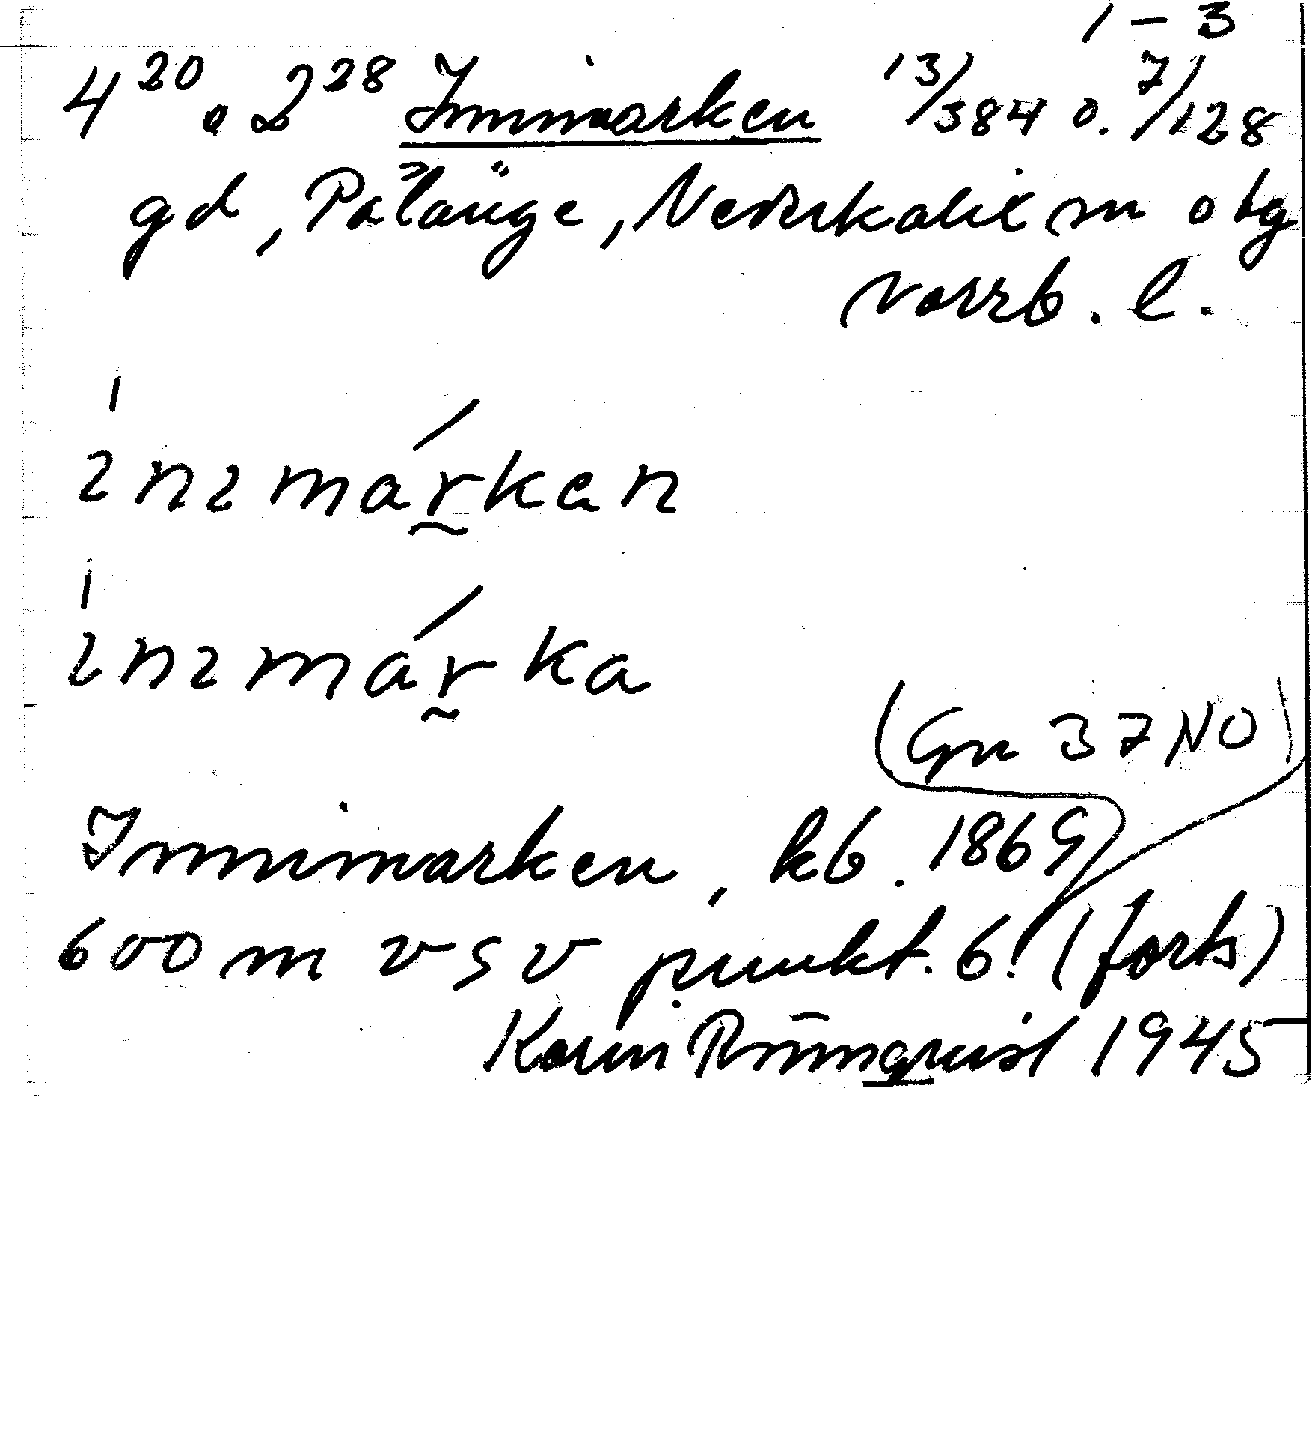 1 – 3
4²⁰ o 2²⁸ Innimarken 13/384 o. 7/128
gd, Pålänge, Nederkalix sn o tg
Norrb. l.
ınımárkan
ınımárka
(Gn 37 NO)
Innimarken, kb. 1869
600 m VSV punkt. 6! (forts)
Karin Rönnqvist 1945